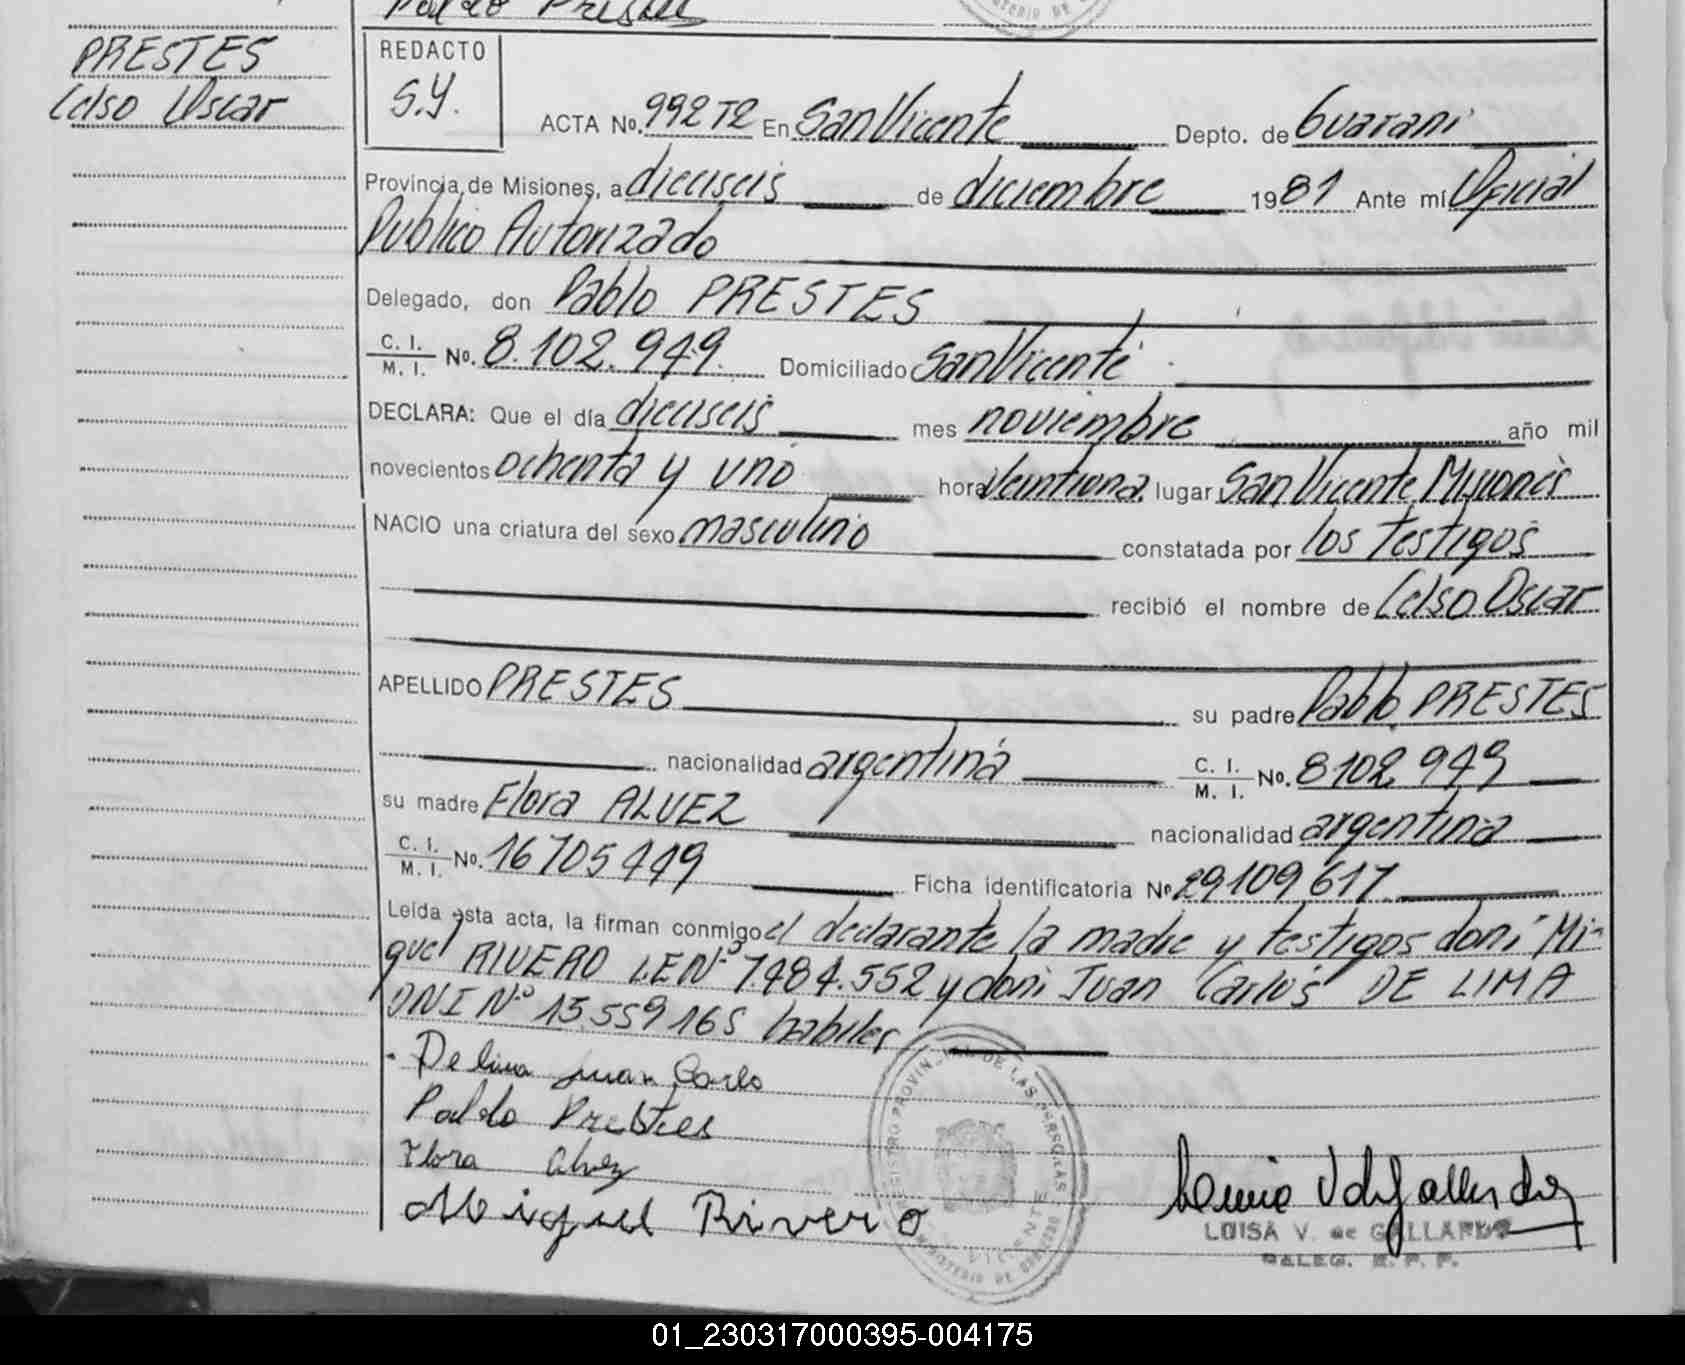 Pablo Prestes
PRESTES
Celso Oscar
REDACTO
S.Y.
ACTA No. 992T2 En San Vicente Depto. de Guaraní
Provincia de Misiones, a dieciseis de diciembre 1981 Ante mí Oficial
Público Autorizado
Delegado, don Pablo PRESTES
C. I. / M. I. No. 8.102.949. Domiciliado San Vicente
DECLARA: Que el día dieciseis mes noviembre año mil
novecientos ochenta y uno hora Veintiuna lugar San Vicente, Misiones
NACIO una criatura del sexo masculino constatada por los testigos
recibió el nombre de Celso Oscar
APELLIDO PRESTES su padre Pablo PRESTES
nacionalidad argentina C. I. / M. I. No. 8102949
su madre Flora ALVEZ nacionalidad argentina
C. I. / M. I. No. 16705449 Ficha identificatoria No. 29109617
Leída esta acta, la firman conmigo el declarante, la madre y testigos doni Mi-
guel RIVERO L.E Nº 7.484.552 y doni Juan Carlos DE LIMA
DNI Nº 13.559165 habiles
De lima Juan Carlo
Pablo Prestes
Flora Alvez
Miguel Rivero
REGISTRO PROVINCIAL DE LAS PERSONAS
VICENTE
MINISTERIO DE GOBIERNO
LUISA V. de GALLARDO
DELEG. R. P. P.
01_230317000395-004175